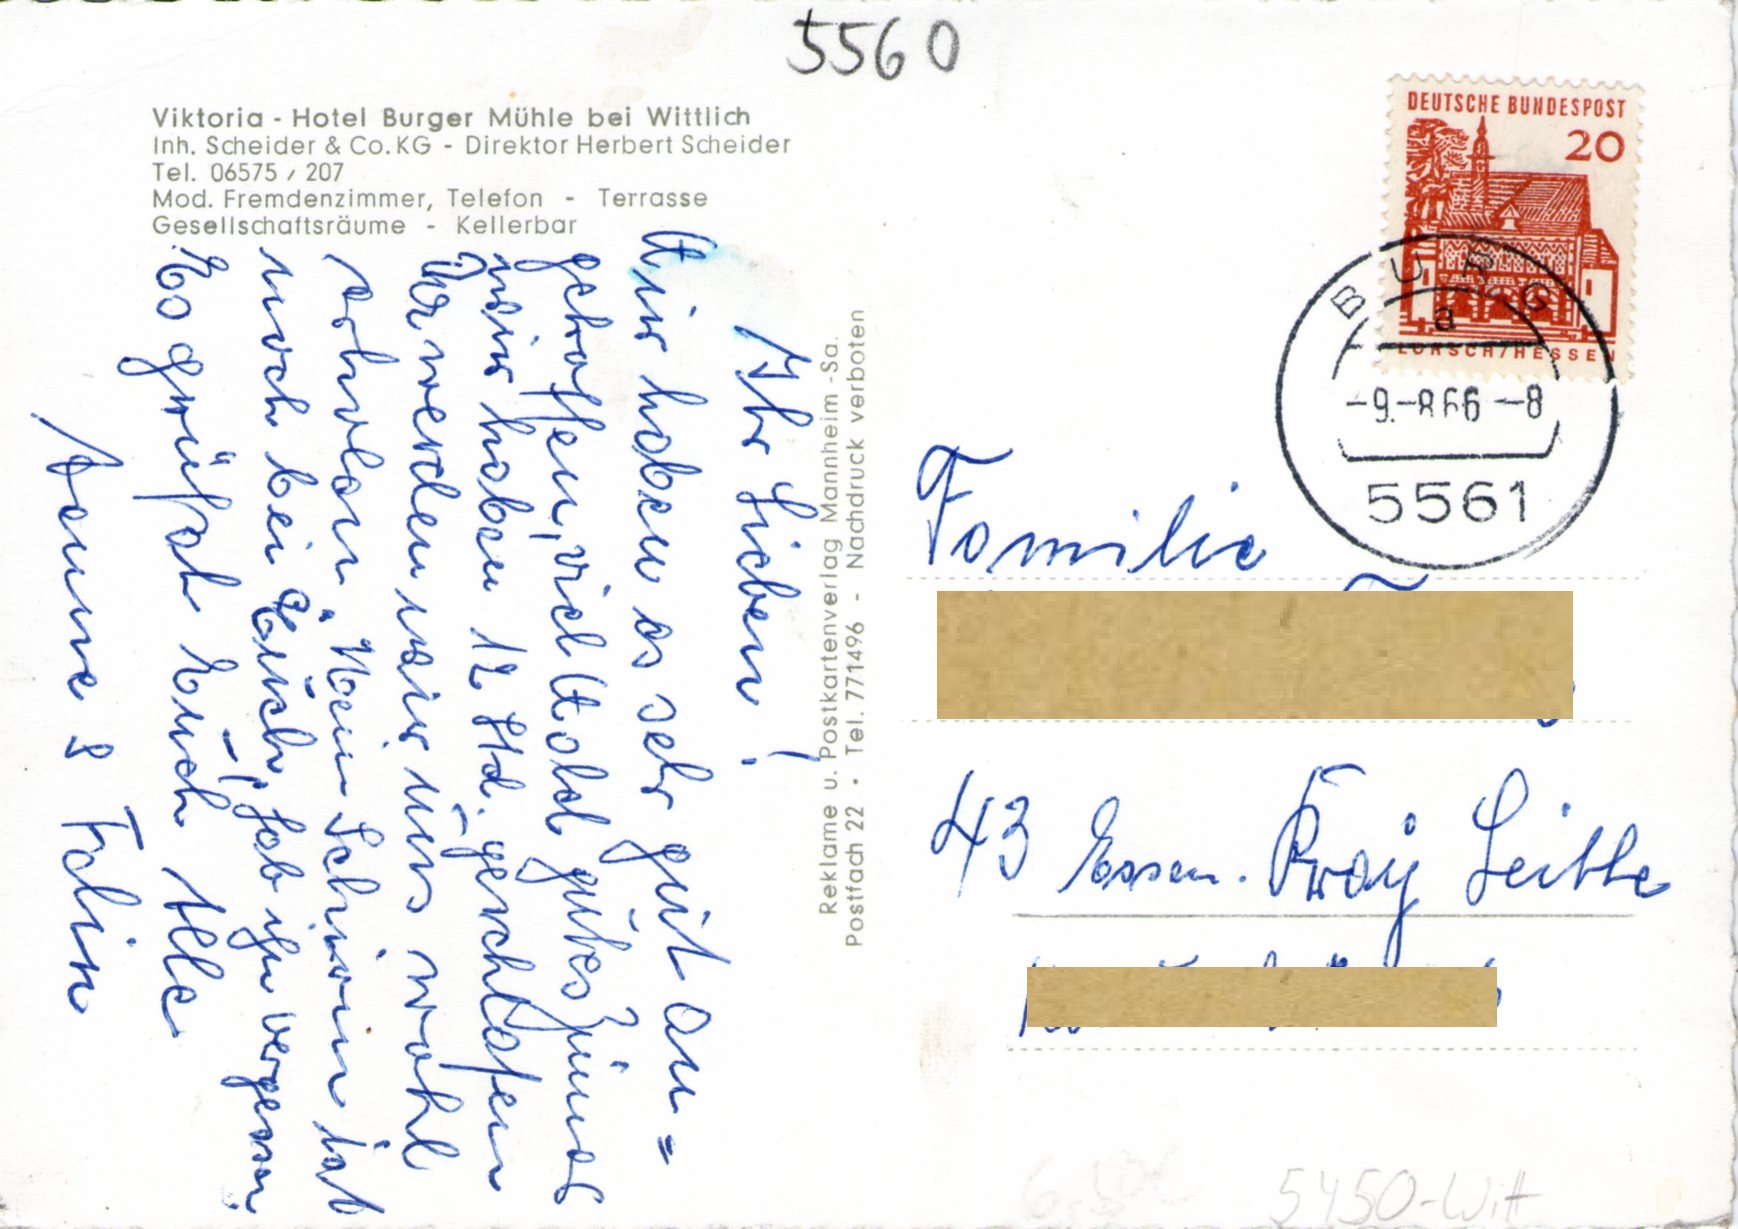 5560
Viktoria - Hotel Burger Mühle bei Wittlich
Inh. Scheider & Co. KG - Direktor Herbert Scheider
Tel. 06575 / 207
Mod. Fremdenzimmer, Telefon - Terrasse
Gesellschaftsräume - Kellerbar
Ihr Lieben!
Wir haben es sehr gut an=
getroffen, viel Wald gutes Zimmer
wir haben 12 Std. geschlafen
Da werden wir uns wohl
erholen. Mein Schirm ist
noch bei Euch, hab ihn vergessen
Es grüßt Euch Alle
Änne &
Reklame u. Postkartenverlag Mannheim - Sa.
Postfach 22 • Tel. 771496 - Nachdruck verboten
DEUTSCHE BUNDESPOST
20
LORSCH/HESSEN
BURG
a
-9.-8.66-8
5561
Familie
43 Essen. Kray Leithe
5450-Witt